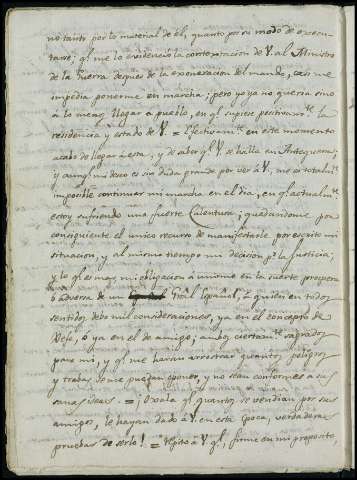 no tanto por lo material de él, quanto por su modo de execu-
tarse; ql. me lo evidenció la contextacion de V. al Ministro
de la Guerra despues de la exoneracion del mando, casi me
impedia ponerme en marcha; pero yo ya no queria sino
á lo menos llegar a pueblo, en ql. supiese positivamte. la
residencia y estado de V. = Efectivamte. en este momento
acabo de llegar á esta, y de saber ql. V. se halla en Antequera;
y aunql. mi deseo es sin duda grande por ver á V. me es totalmte.
imposible continuar mi marcha en el dia, en ql. actualmte.
estoy sufriendo una fuerte Calentura; quedandome por
consiguiente el unico recurso de manifestarle por escrito mi
situacion, y al mismo tiempo mi decision pr. la Justicia;
y lo ql. es mas mi obligacion á unirme en la suerte prospera
ó adversa de un Gral. Español, á quien en todos
sentidos debo mil consideraciones, ya en el concepto de
Gefe, ó ya en el de amigo; ambos ciertamte. sagrados
para mi, y ql. me harian arrostrar quantos peligros
y trabas se me puedan oponer, y no sean conformes a sus
sanas ideas = ¡Oxala ql. quantos se vendian por sus
amigos, le hayan dado á V. en esta epoca, verdaderas
pruebas de serlo! = Repito á V. ql. firme en mi proposito,